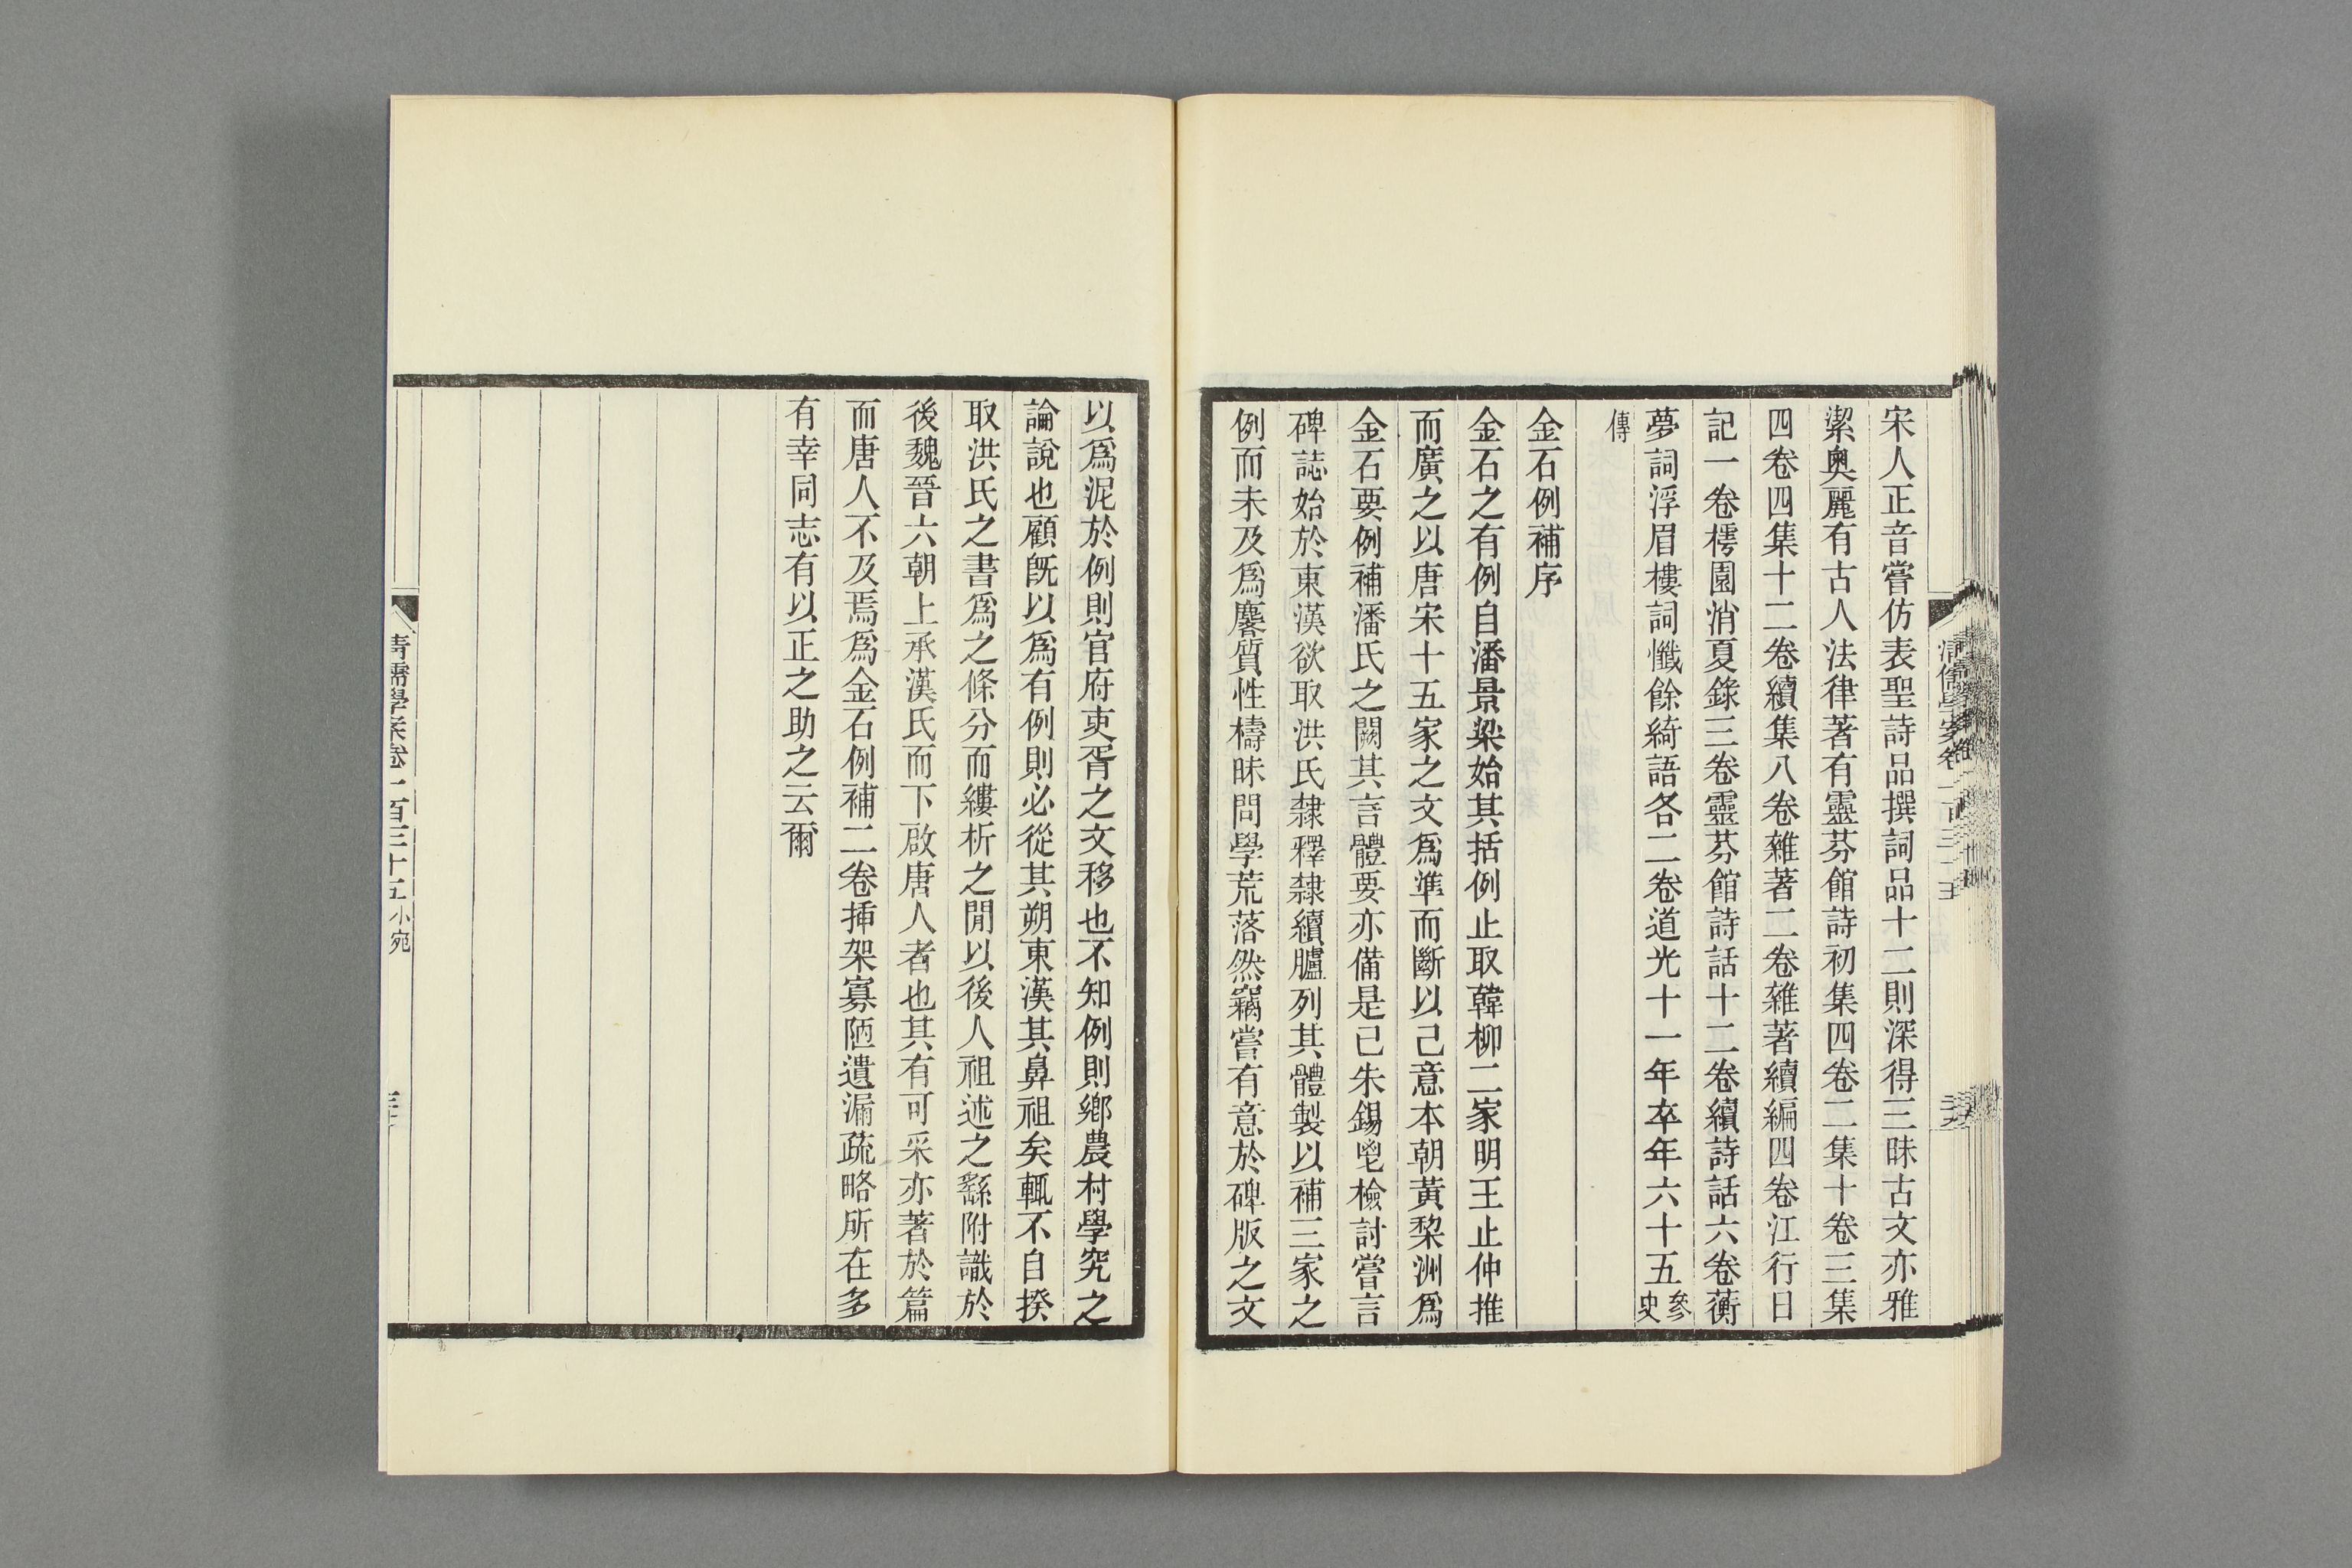 宋人正音嘗仿表聖詩品撰詞品十二則深得三昧古文亦雅
潔奧麗有古人法律著有靈芬館詩初集四卷二集十卷三集
四卷四集十二卷續集八卷雜著二卷雜著續編四卷江行日
記一卷樗園消夏錄三卷靈芬館詩話十二卷續詩話六卷蘅
夢詞浮眉樓詞懺餘綺語各二卷道光十一年卒年六十五參史
傳
金石例補序
金石之有例自潘景梁始其括例止取韓柳二家明王止仲推
而廣之以唐宋十五家之文爲準而斷以己意本朝黃棃洲爲
金石要例補潘氏之闕其言體要亦備是已朱錫鬯檢討嘗言
碑誌始於東漢欲取洪氏隸釋隸續臚列其體製以補三家之
例而未及爲麐質性檮昧問學荒落然竊嘗有意於碑版之文
以爲泥於例則官府吏胥之文移也不知例則鄉農村學究之
論說也顧旣以爲有例則必從其朔東漢其鼻祖矣輒不自揆
取洪氏之書爲之條分而縷析之閒以後人祖述之繇附識於
後魏晉六朝上承漢氏而下啟唐人者也其有可采亦著於篇
而唐人不及焉爲金石例補二卷揷架寡陋遺漏疏略所在多
有幸同志有以正之助之云爾
清儒學案卷一百三十五 小宛